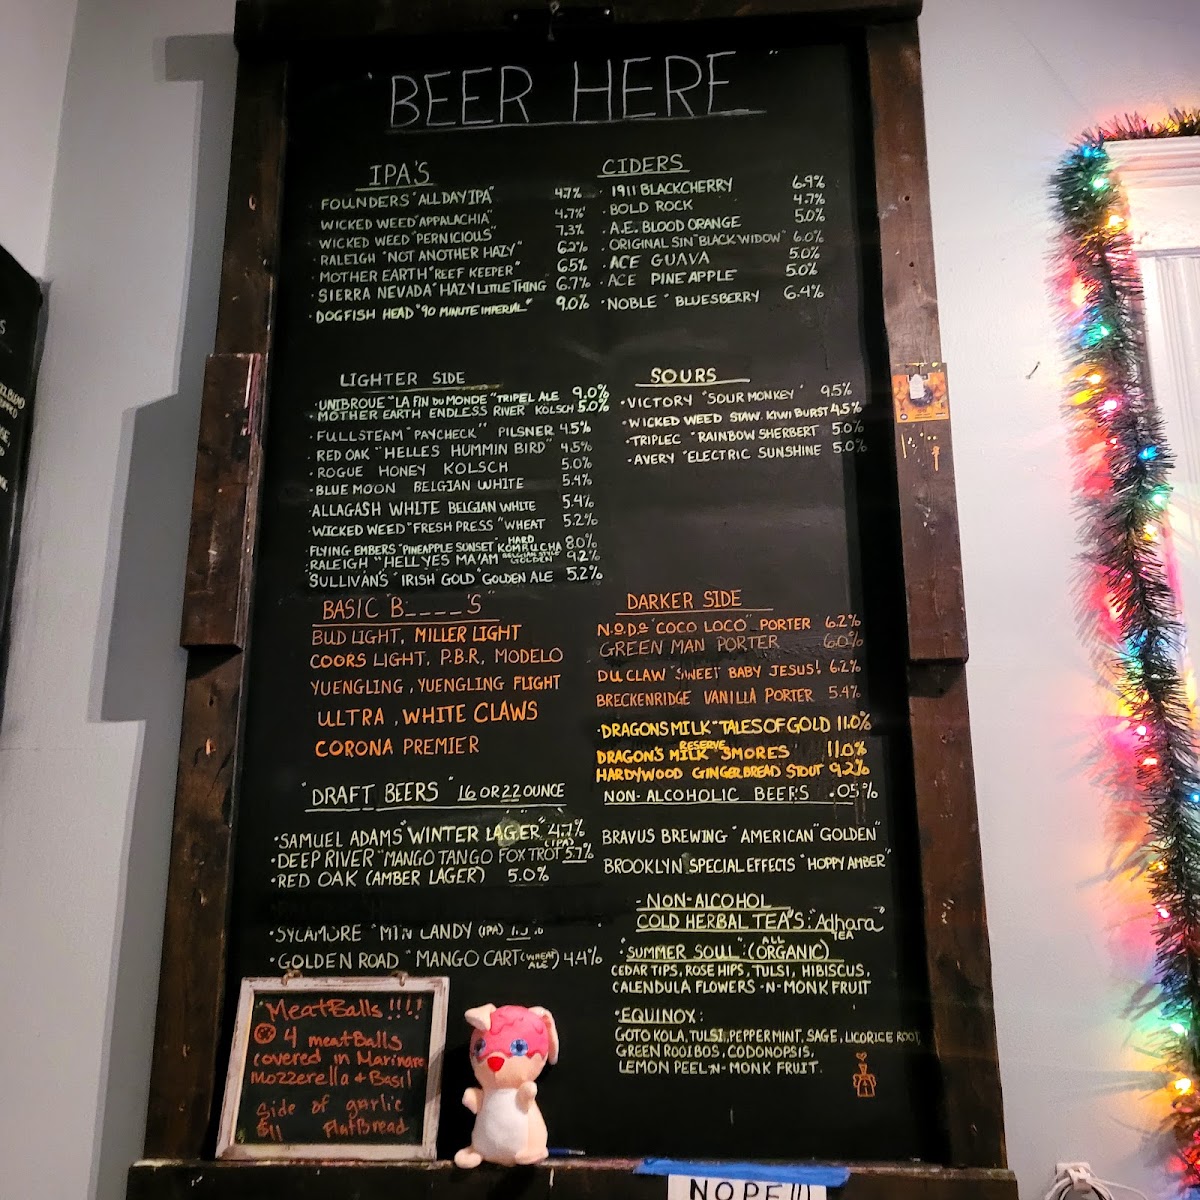 "BEER HERE"
IPA'S
FOUNDERS "ALL DAY IPA" 4.7%
WICKED WEED "APPALACHIA" 4.7%
WICKED WEED "PERNICIOUS" 7.3%
RALEIGH "NOT ANOTHER HAZY" 6.2%
MOTHER EARTH "REEF KEEPER" 6.5%
SIERRA NEVADA "HAZY LITTLE THING 6.7%
DOGFISH HEAD "90 MINUTE IMPERIAL" 9.0%
CIDERS
1911 BLACKCHERRY 6.9%
BOLD ROCK 4.7%
A.E. BLOOD ORANGE 5.0%
ORIGINAL SIN "BLACK WIDOW" 6.0%
ACE GUAVA 5.0%
ACE PINEAPPLE 5.0%
NOBLE "BLUESBERRY 6.4%
LIGHTER SIDE
UNIBROUE "LA FIN DU MONDE" TRIPEL ALE 9.0%
MOTHER EARTH ENDLESS RIVER KOLSCH 5.0%
FULLSTEAM "PAYCHECK" PILSNER 4.5%
RED OAK "HELLES HUMMIN BIRD" 4.5%
ROGUE HONEY KOLSCH 5.0%
BLUE MOON BELGIAN WHITE 5.4%
ALLAGASH WHITE BELGIAN WHITE 5.4%
WICKED WEED "FRESH PRESS" WHEAT 5.2%
FLYING EMBERS "PINEAPPLE SUNSET" HARD KOMBUCHA 8.0%
RALEIGH "HELL YES MA'AM BELGIAN STYLE GOLDEN 9.2%
SULLIVAN'S "IRISH GOLD" GOLDEN ALE 5.2%
SOURS
VICTORY "SOUR MONKEY" 9.5%
WICKED WEED STAW. KIWI BURST 4.5%
TRIPLEC "RAINBOW SHERBERT 5.0%
AVERY "ELECTRIC SUNSHINE 5.0%
BASIC "B____'S"
BUD LIGHT, MILLER LIGHT
COORS LIGHT, P.B.R, MODELO
YUENGLING, YUENGLING FLIGHT
ULTRA, WHITE CLAWS
CORONA PREMIER
DARKER SIDE
N.O.D.A "COCO LOCO" PORTER 6.2%
GREEN MAN PORTER 6.0%
DU CLAW "SWEET BABY JESUS! 6.2%
BRECKENRIDGE VANILLA PORTER 5.4%
DRAGONS MILK "TALES OF GOLD 11.0%
DRAGON'S MILK RESERVE "SMORES" 11.0%
HARDYWOOD GINGERBREAD STOUT 9.2%
"DRAFT BEERS" 16 OR 22 OUNCE
SAMUEL ADAMS "WINTER LAGER" 4.7%
DEEP RIVER "MANGO TANGO FOXTROT (IPA) 5.7%
RED OAK (AMBER LAGER) 5.0%
SYCAMORE "MTN CANDY (IPA)
GOLDEN ROAD "MANGO CART (WHEAT ALE) 4.4%
NON-ALCOHOLIC BEERS .05%
BRAVUS BREWING "AMERICAN "GOLDEN"
BROOKLYN SPECIAL EFFECTS "HOPPY AMBER"
- NON-ALCOHOL
COLD HERBAL TEA'S: "Adhara" TEA
"SUMMER SOUL": (ALL ORGANIC)
CEDAR TIPS, ROSE HIPS, TULSI, HIBISCUS,
CALENDULA FLOWERS -N- MONK FRUIT
EQUINOX:
GOTO KOLA, TULSI, PEPPERMINT, SAGE, LICORICE ROOT,
GREEN ROOIBOS, CODONOPSIS,
LEMON PEEL -N- MONK FRUIT.
MeatBalls!!!!
4 meatBalls
covered in Marinara
Mozzerella + Basil
Side of garlic
$11 FlatBread
NOPE!!!